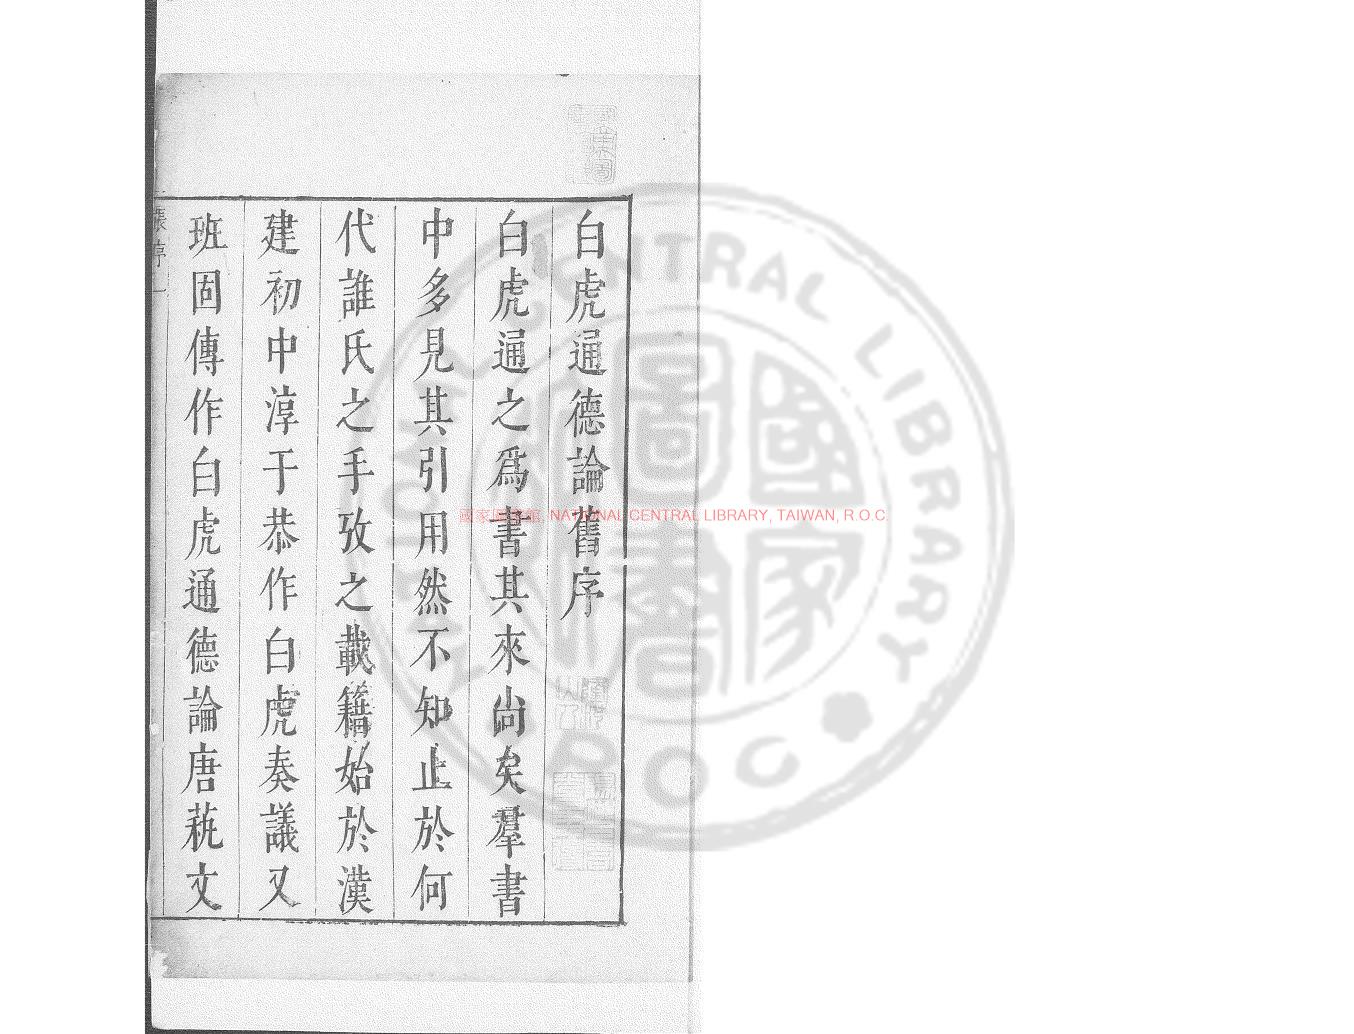 白虎通德論舊序
白虎通之爲書其來尚矣羣書
中多見其引用然不知止於何
代誰氏之手攷之載籍始於漢
建初中淳于恭作白虎奏議又
班固傳作白虎通德論唐藝文
張序 一
國家圖書館, NATIONAL CENTRAL LIBRARY, TAIWAN, R.O.C.
NATIONAL CENTRAL LIBRARY
國家圖書
ROC